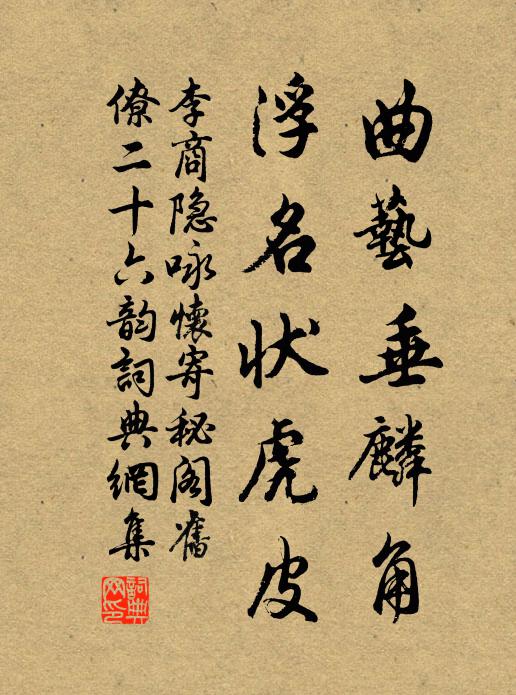 曲藝垂麟角
浮名狀虎皮
李商隐咏懷寄秘阁舊
僚二十六韵詞典網集
詞典网印